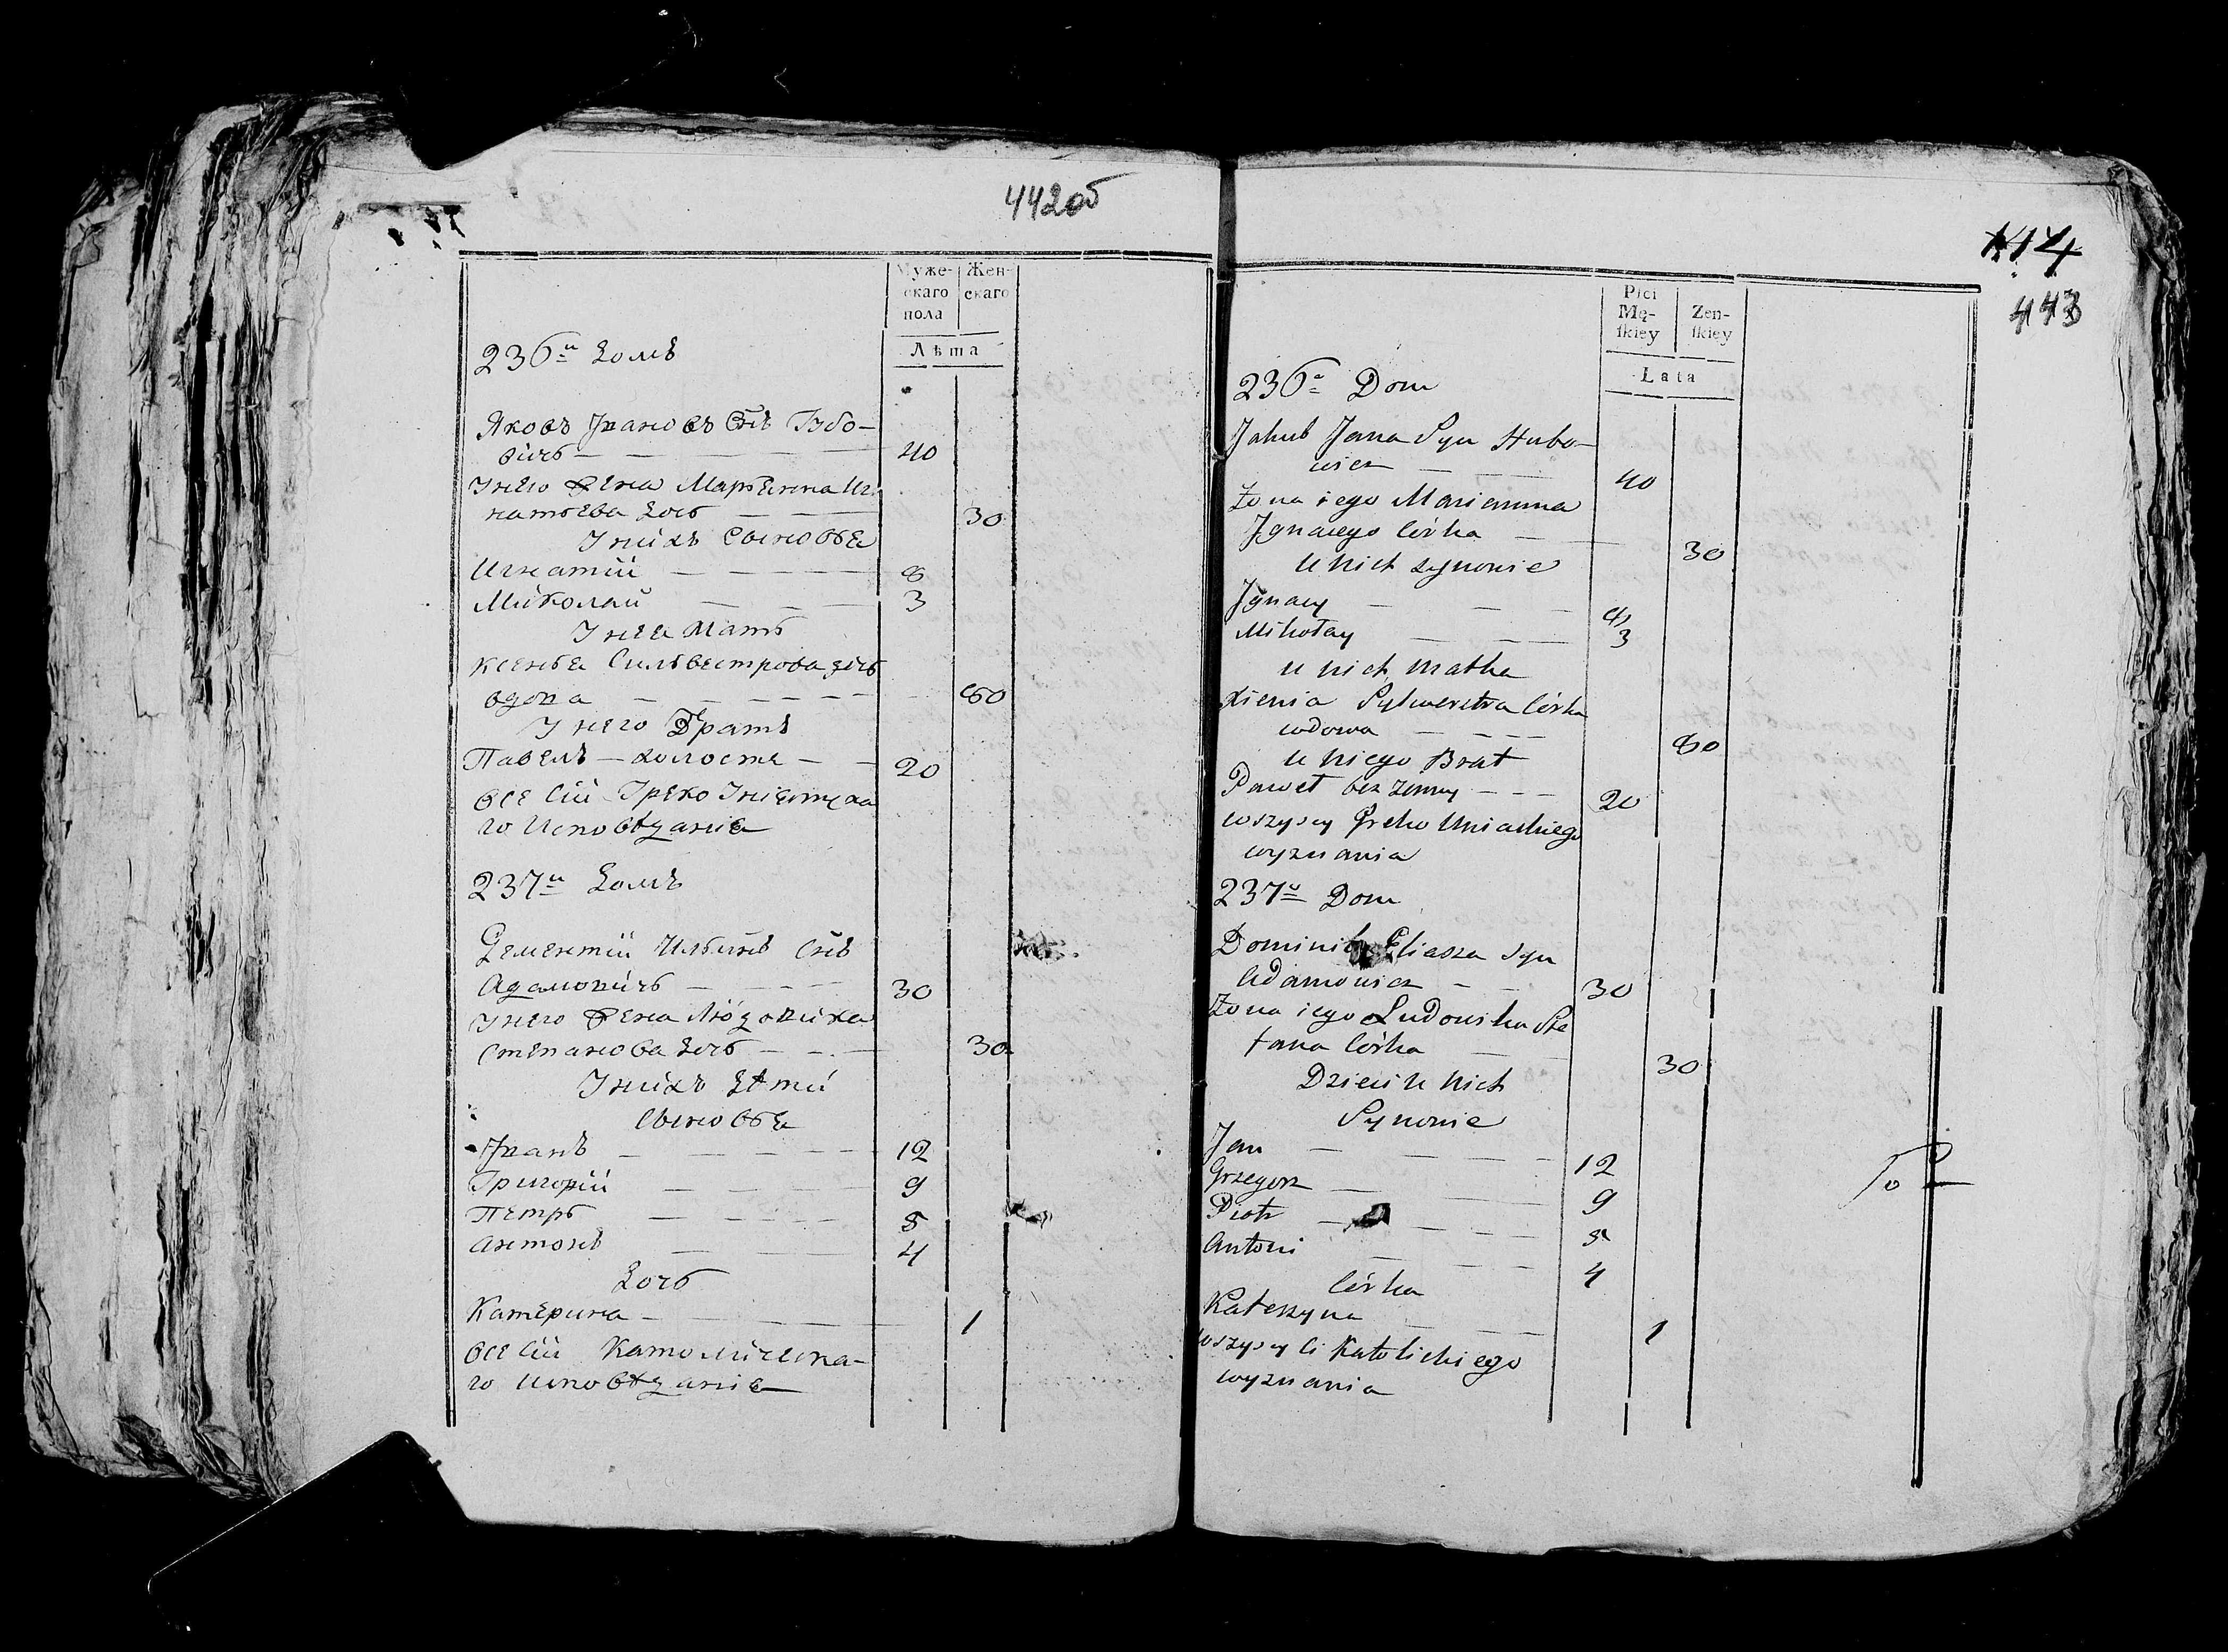 442об
Муже-
скаго
пола
Жен-
скаго
Лѣта
236й Домъ
Яковъ Ивановъ Снъ Губо-
вичь 40
У него жена Марьянна Иг-
натьева дочь 30
У нихъ Сыновья
Игнатій 8
Миколай 3
У нея Мать
Ксенья Сильвестрова дочь
вдова 60
У него Братъ
Павелъ — холостъ 20
Все Сіи Греко Уніятска
го Исповѣданія
237й Домъ
Дементій Ильинъ Снъ
Адамовичь 30
У него жена Людовика
Степанова дочь 30
У нихъ дѣти
Сыновья
Иванъ 12
Григорій 9
Петръ 8
Антонъ 4
Дочь
Катерина 1
Все Сіи Католическа-
го исповѣданія
443
Płci
Mę-
ſkiey
Zen-
ſkiey
Lata
236 Dom
Jakub Jana Syn Hubo-
wicz 40
Żona iego Marianna
Jgnacego Córka 30
U nich synowie
Jgnacy 8
Mikołay 3
U nich matka
Xienia Sylwestra Córka
wdowa 60
U niego Brat
Paweł bez żenny 20
wszyscy Greko Uniackiego
wyznania
237 Dom
Dominik Eliasza syn
Adamowicz 30
Żona iego Ludowika Ste
fana Córka 30
Dzieci U nich
Synowie
Jan 12
Grzegorz 9
Piotr 8
Antoni 4
Córka
Katerzyna 1
wszyscy Ci Katolickiego
wyznania